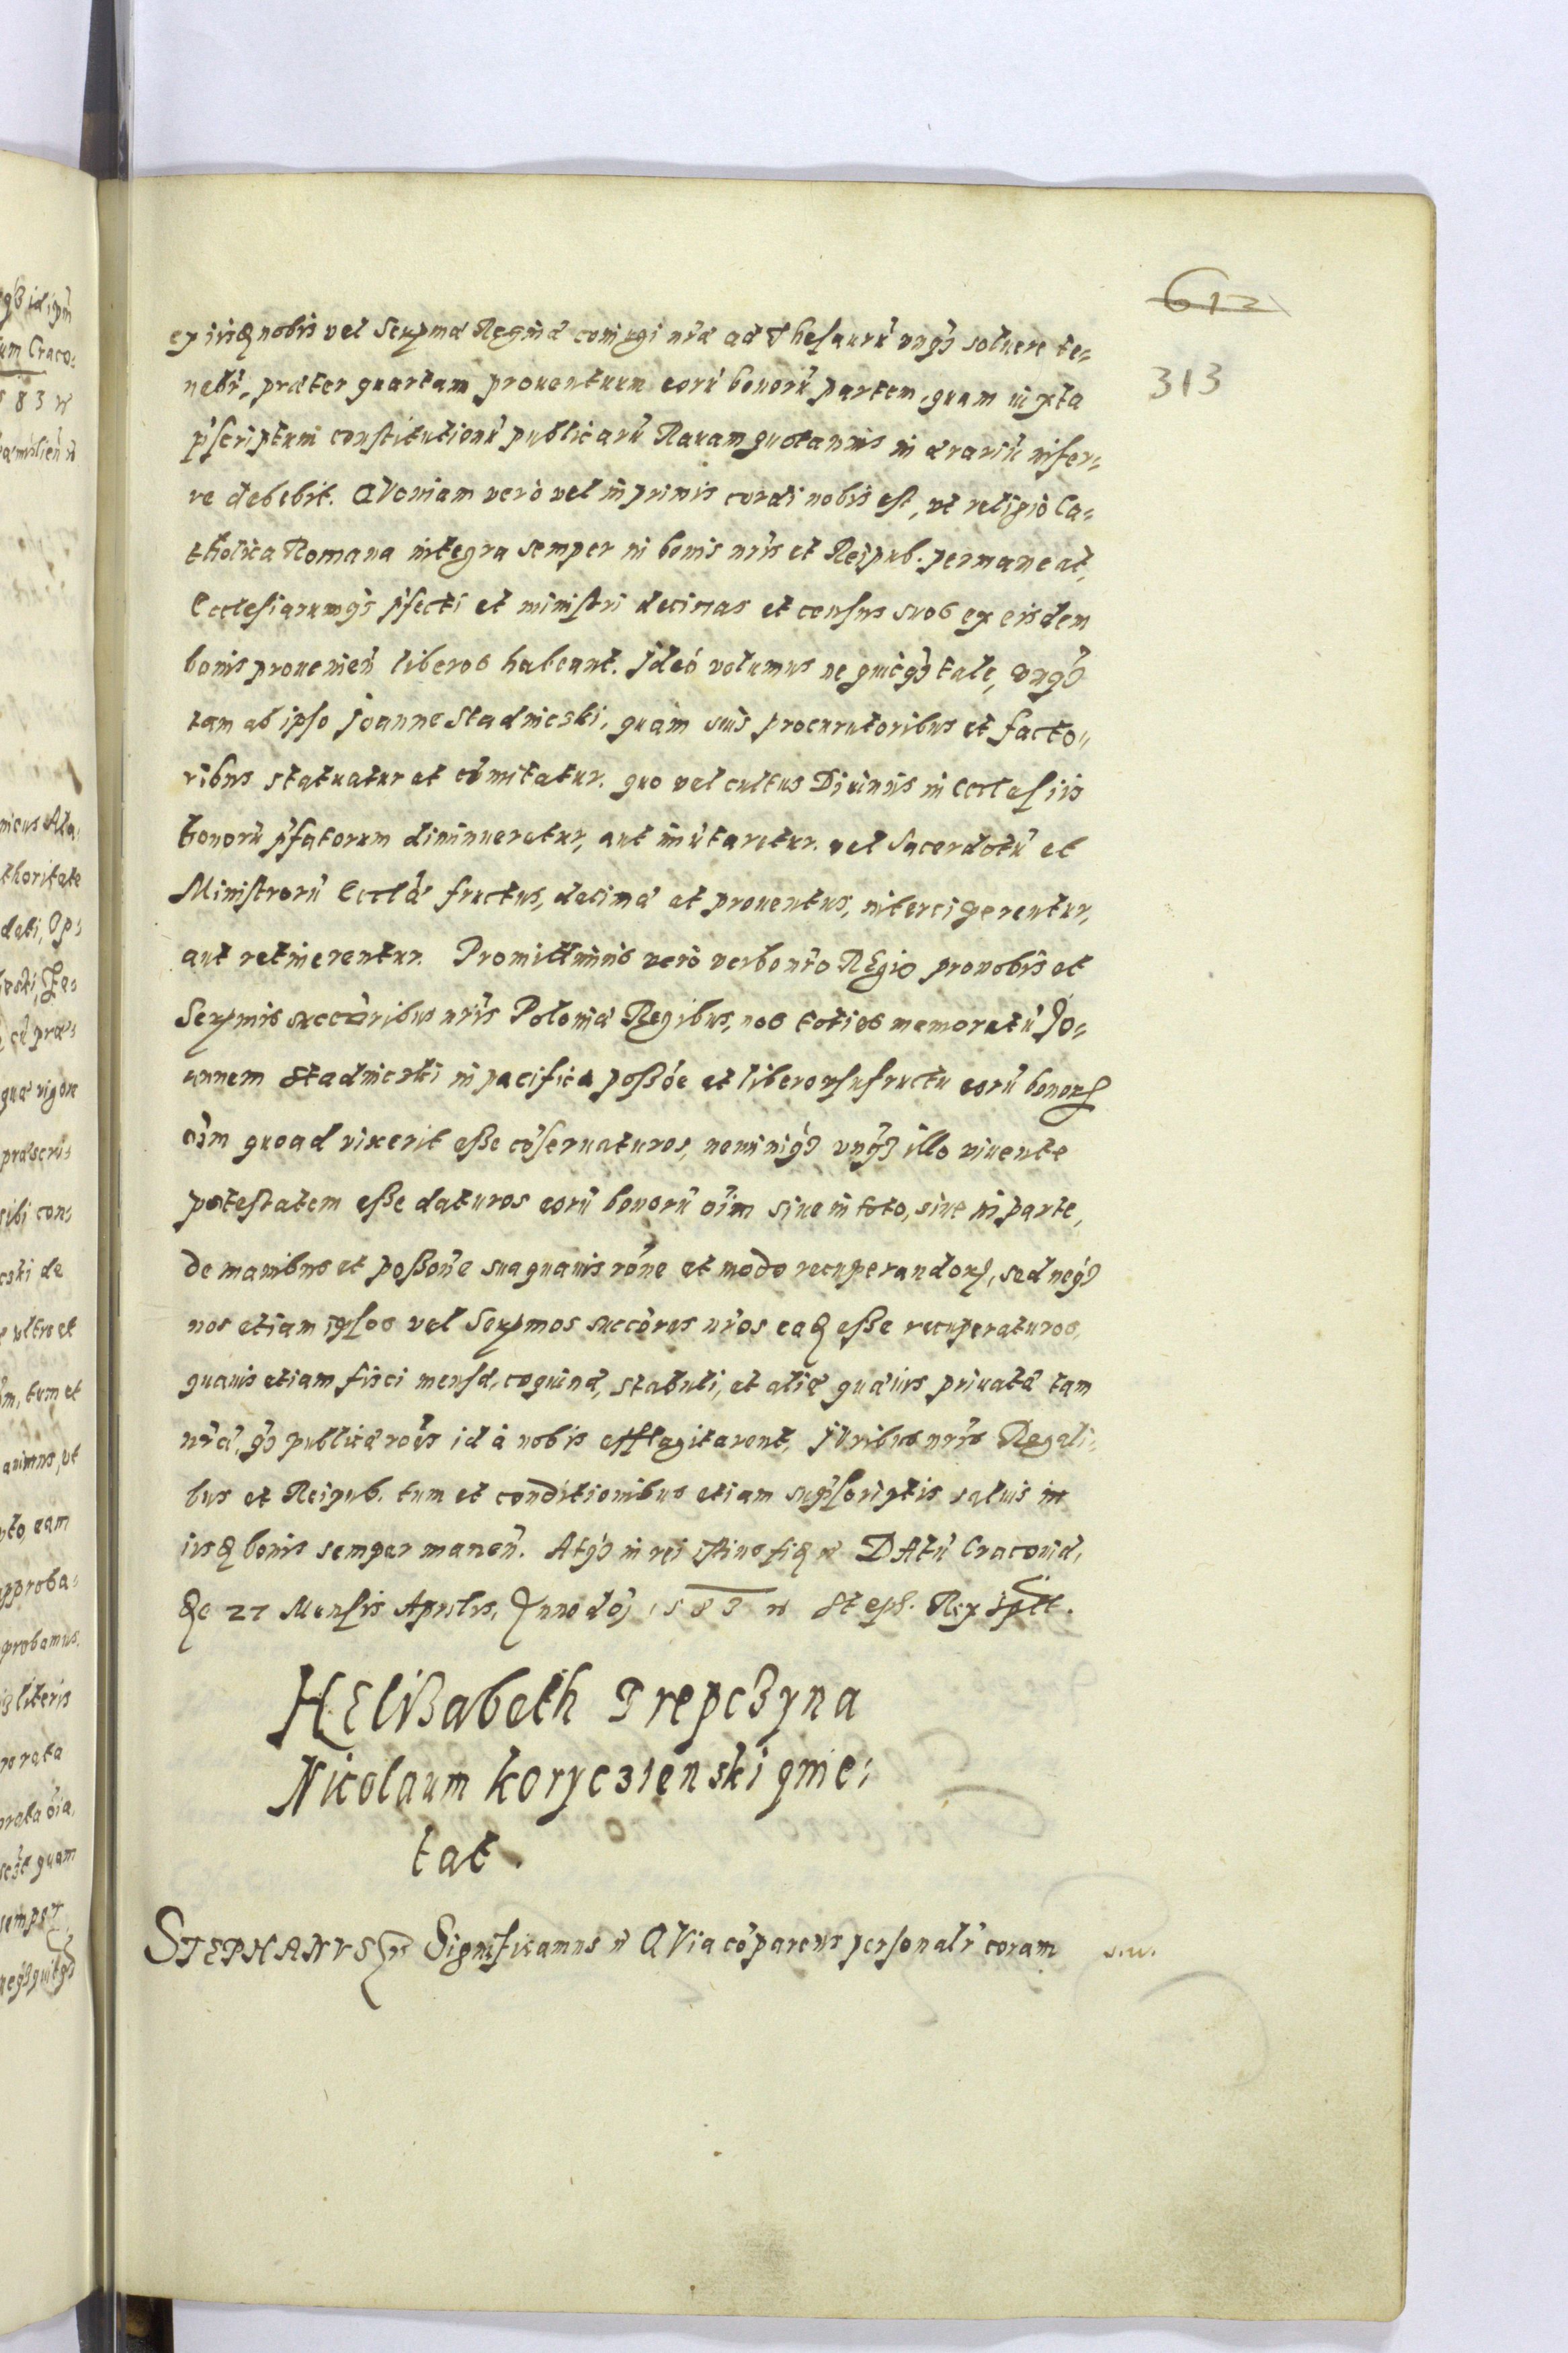 612
313
ex iisq nobis vel Serzmæ Reginæ coniugi nræ ad Thesaurū unq̃ȝ soluere te=
nebr̃, præter quartam prouentuum eorū bonorū partem, quam iuxta
p̃scriptum constitutionū publicarū Rauam quotannis in ærariū infer=
re debebit. QVoniam verò vel inprimis cordi nobis est, ut religio Ca=
tholica Romana integra semper in bonis nris et Reipub. permaneat,
Ecclesiarumq̃ȝ p̃fecti et ministri decimas et census suos ex eisdem
bonis prouenieñ liberos habeant. Ideó volumus ne quicq̃ȝ tale, unq̃ȝ
tam ab ipso Joanne Stadnicski, quam suis procuratoribus et facto=
ribus statuatur et cõmitatur. quo vel cultus Diuinus in Ecclesiis
bonorū p̃fatorum diminueretur, aut imũtaretur. vel Sacerdotū et
Ministrorū Eccl̃æ fructus, decimæ et prouentus, interciperentur,
aut retinerentur. Promittimus verò verbo nr̃o REgio pro nobis et
Serzmis succõribus nr̃is Poloniæ Regibus, nos toties memoratū Jo=
annem Stadnicski in pacifica poßóe et libero usufructu eorū bonorȝ
oĩm quoad vixerit eße cõseruaturos, neminiq̃ȝ vnq̃ȝ illo viuente
potestatem eße daturos eorū bonorū oĩm siue in toto, siue in parte,
de manibus et poßoñe sua quauis rõne et modo recuperandorȝ, sed neq̃ȝ
nos etiam ipsos vel Serzmos succõres nr̃os eaq eße recuperaturos,
quauis etiam fisci mensæ, coquinæ, stabuli, et aliæ quæuis priuatæ tam
nr̃æ, q̃ȝ publicæ rões id à nobis efflagitarent, JVribus nr̃is Regali=
bus et Reipub. tum et conditionibus etiam supscriptis saluis in
iisq bonis semper maneñ. Atq̃ȝ in rei istius fiq DAtū Cracouiæ,
27 Mensis Aprilis, Anno dõj 1583 Steph. Rex sptt.
HElißabeth Trepcȝyna
Nicolaum korycȝienski qnie=
tat.
STEPHANVS Significamus QVia cõparens personalr̃ coram